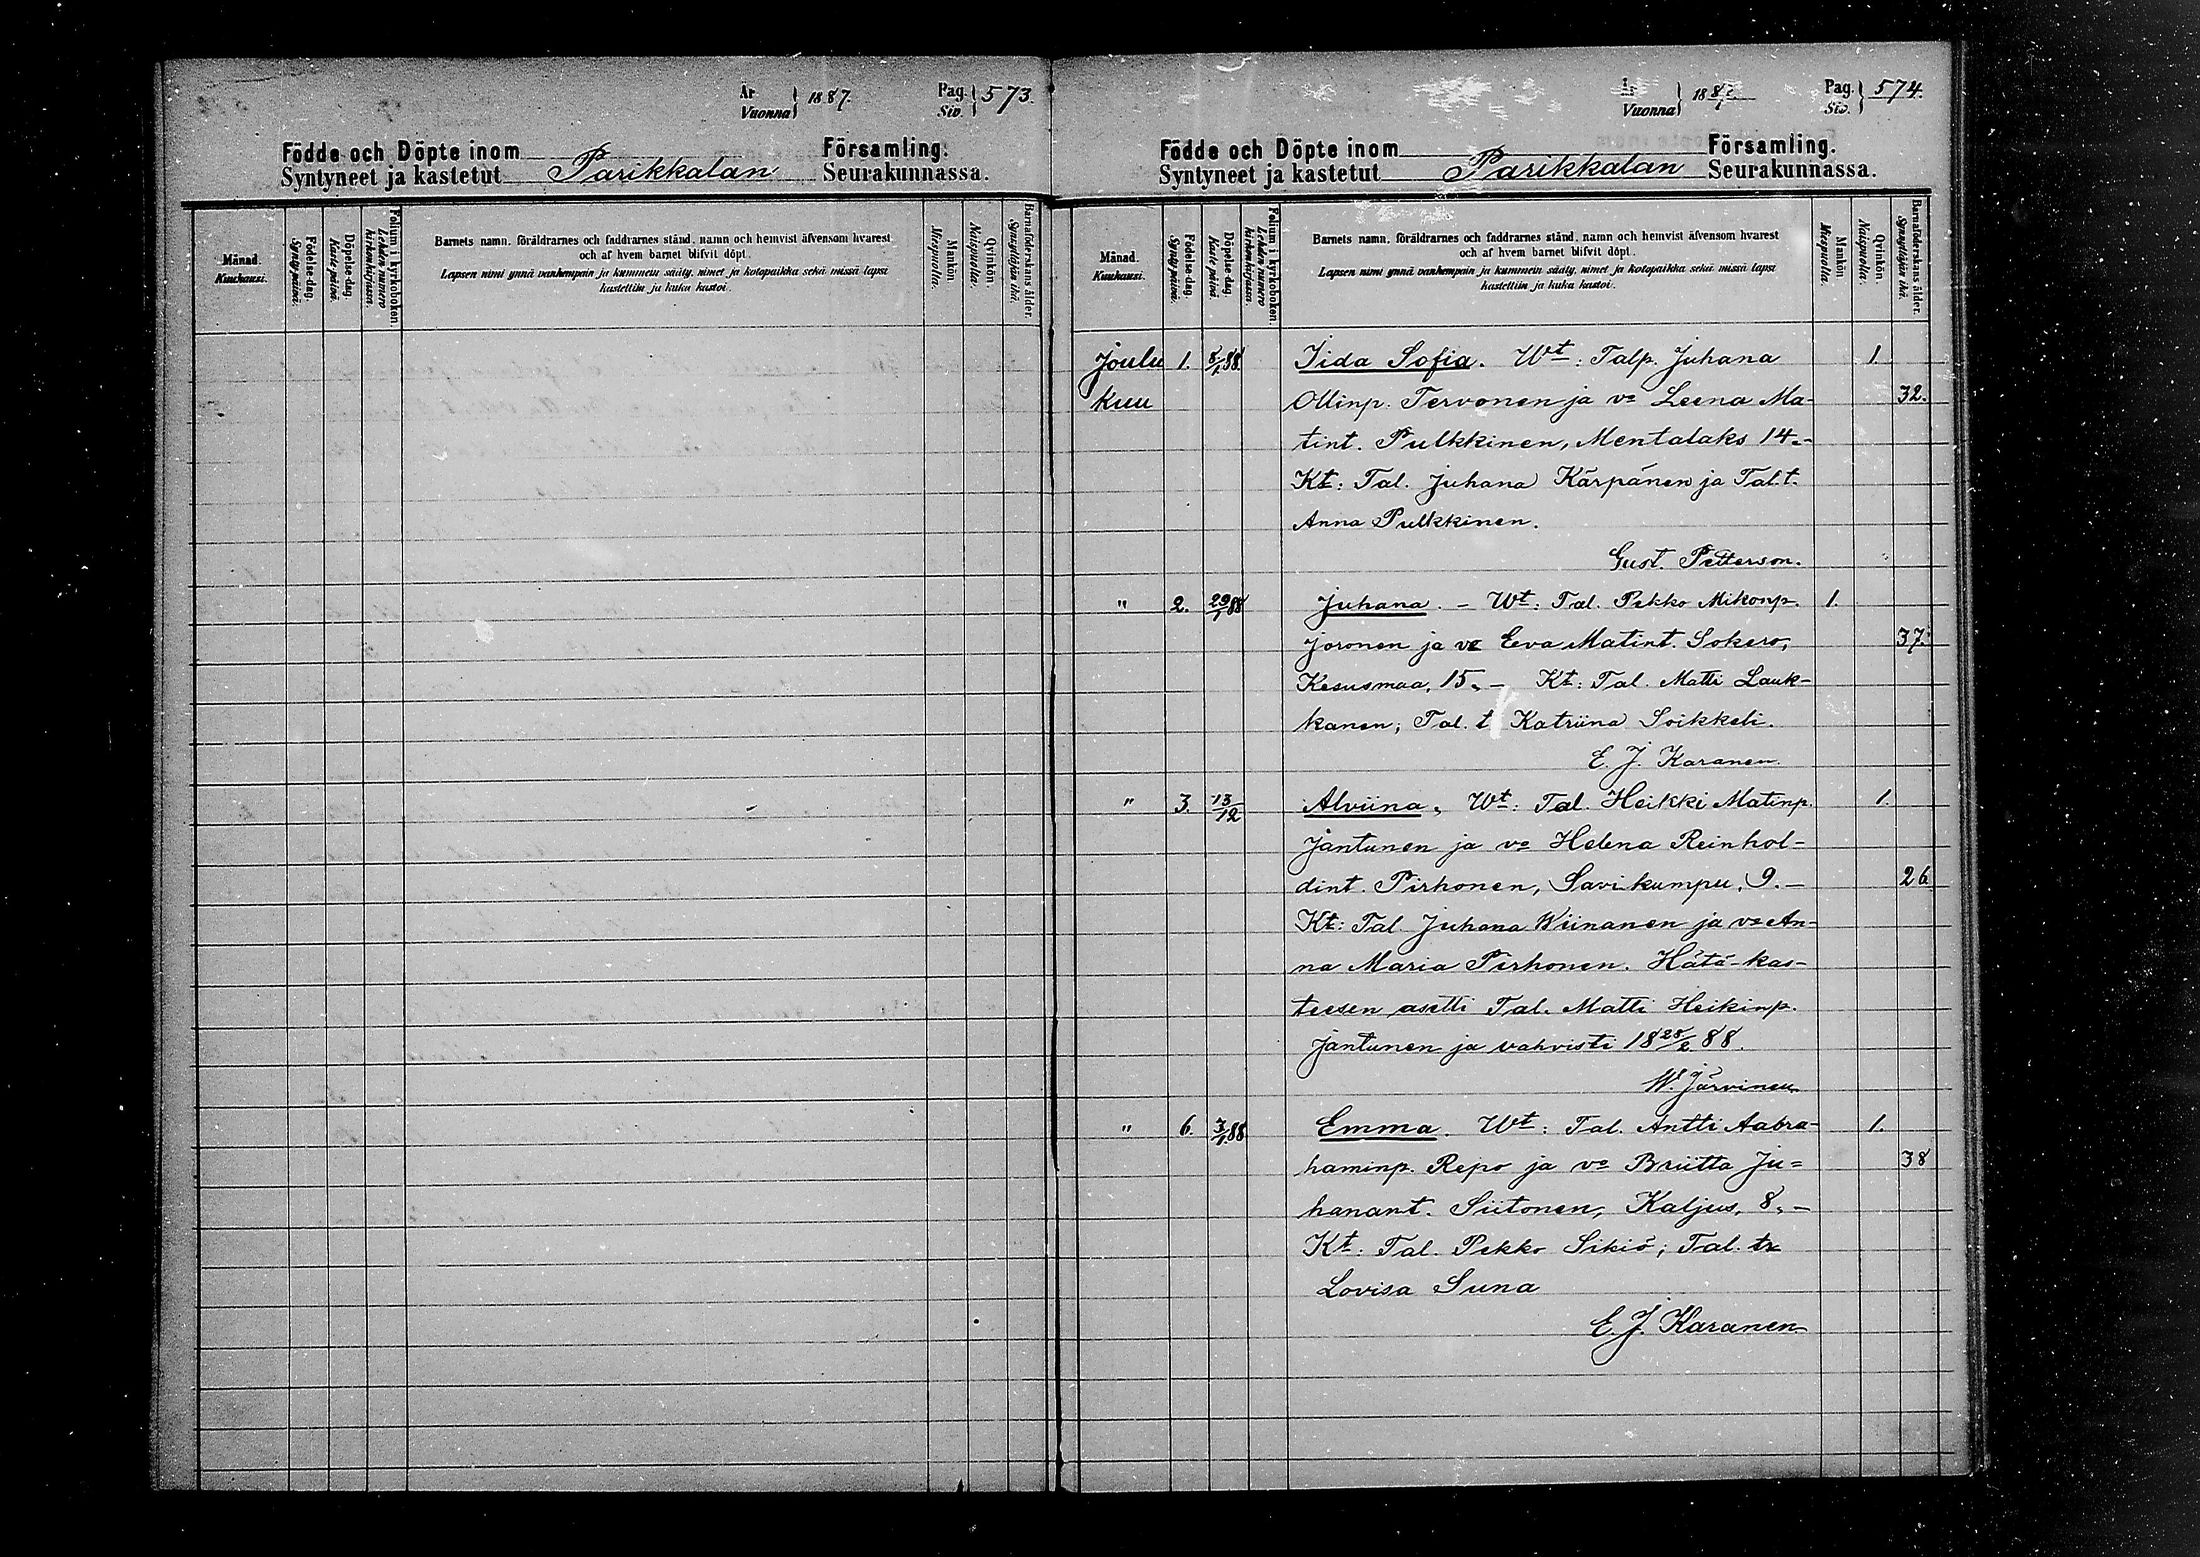 År
Vuonna } 1887.
Pag.
Siv. } 573.
Födde och Döpte inom Församling.
Syntyneet ja kastetut Parikkalan Seurakunnassa.
Månad.
Kuukausi.
Födelse-dag.
Syntymäpäivä.
Döpelse-dag.
Kaste päivä.
Folium i kyrkoboken.
Lehden numero
kirkonkirjassa.
Barnets namn, föräldrarnes och faddrarnes stånd, namn och hemvist äfvensom hvarest
och af hvem barnet blifvit döpt.
Lapsen nimi ynnä vanhempain ja kummein sääty, nimet ja kotopaikka sekä missä lapsi
kastettiin ja kuka kastoi.
Mankön.
Miespuolia.
Qvinkön.
Naispuolia.
Barnaföderskans ålder.
Synnyttäjän ikä.
År
Vuonna } 1887.
Pag.
Siv. } 574.
Födde och Döpte inom Församling.
Syntyneet ja kastetut Parikkalan Seurakunnassa.
Månad.
Kuukausi.
Födelse-dag.
Syntymäpäivä.
Döpelse-dag.
Kaste päivä.
Folium i kyrkoboken.
Lehden numero
kirkonkirjassa.
Barnets namn, föräldrarnes och faddrarnes stånd, namn och hemvist äfvensom hvarest
och af hvem barnet blifvit döpt.
Lapsen nimi ynnä vanhempain ja kummein sääty, nimet ja kotopaikka sekä missä lapsi
kastettiin ja kuka kastoi.
Mankön
Miespuolia.
Qvinkön.
Naispuolia.
Barnaföderskans ålder.
Synnyttäjän ikä.
Joulu 1. 8/1 88. Iida Sofia. Wt: Talp. Juhana 1.
kuu Ollinp. Tervonen ja vo Leena Ma- 32.
tint. Pulkkinen, Mentalaks 14.-
Kt: Tal. Juhana Kärpänen ja Tal.t.
Anna Pulkkinen.
Gust. Petterson.
" 2. 29/1 88 Juhana. - Wt: Tal. Pekko Mikonp. 1.
Joronen ja vo Eeva Matint. Sokero, 37.
Kesusmaa, 15. - Kt: Tal. Matti Lauk-
kanen; Tal. t Katriina Soikkeli.
E. J. Karanen.
" 3. 13/12 Alviina. Wt: Tal. Heikki Matinp. 1.
Jantunen ja vo Helena Reinhol-
dint. Pirhonen, Savikumpu, 9. - 26
Kt: Tal. Juhana Wiinanen ja vo An-
na Maria Pirhonen. Hätä-kas-
teesen asetti Tal. Matti Heikinp.
Jantunen ja vahvisti 18 28/2 88.
W. Järvinen
" 6. 3/1 88 Emma. Wt: Tal. Antti Aabra- 1.
haminp. Repo ja vo Briitta Ju= 38
hanant. Siitonen, Kaljus, 8. -
Kt: Tal. Pekko Sikiö; Tal. tr
Lovisa Suna
E. J. Karanen